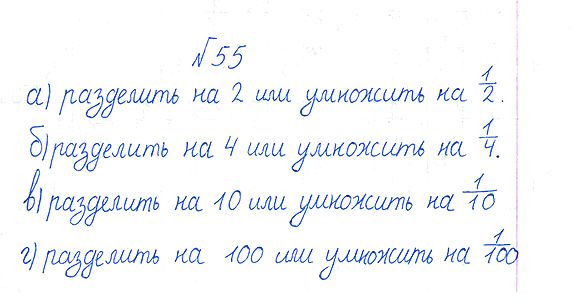 №55
а) разделить на 2 или умножить на 1/2.
б) разделить на 4 или умножить на 1/4.
в) разделить на 10 или умножить на 1/10
г) разделить на 100 или умножить на 1/100